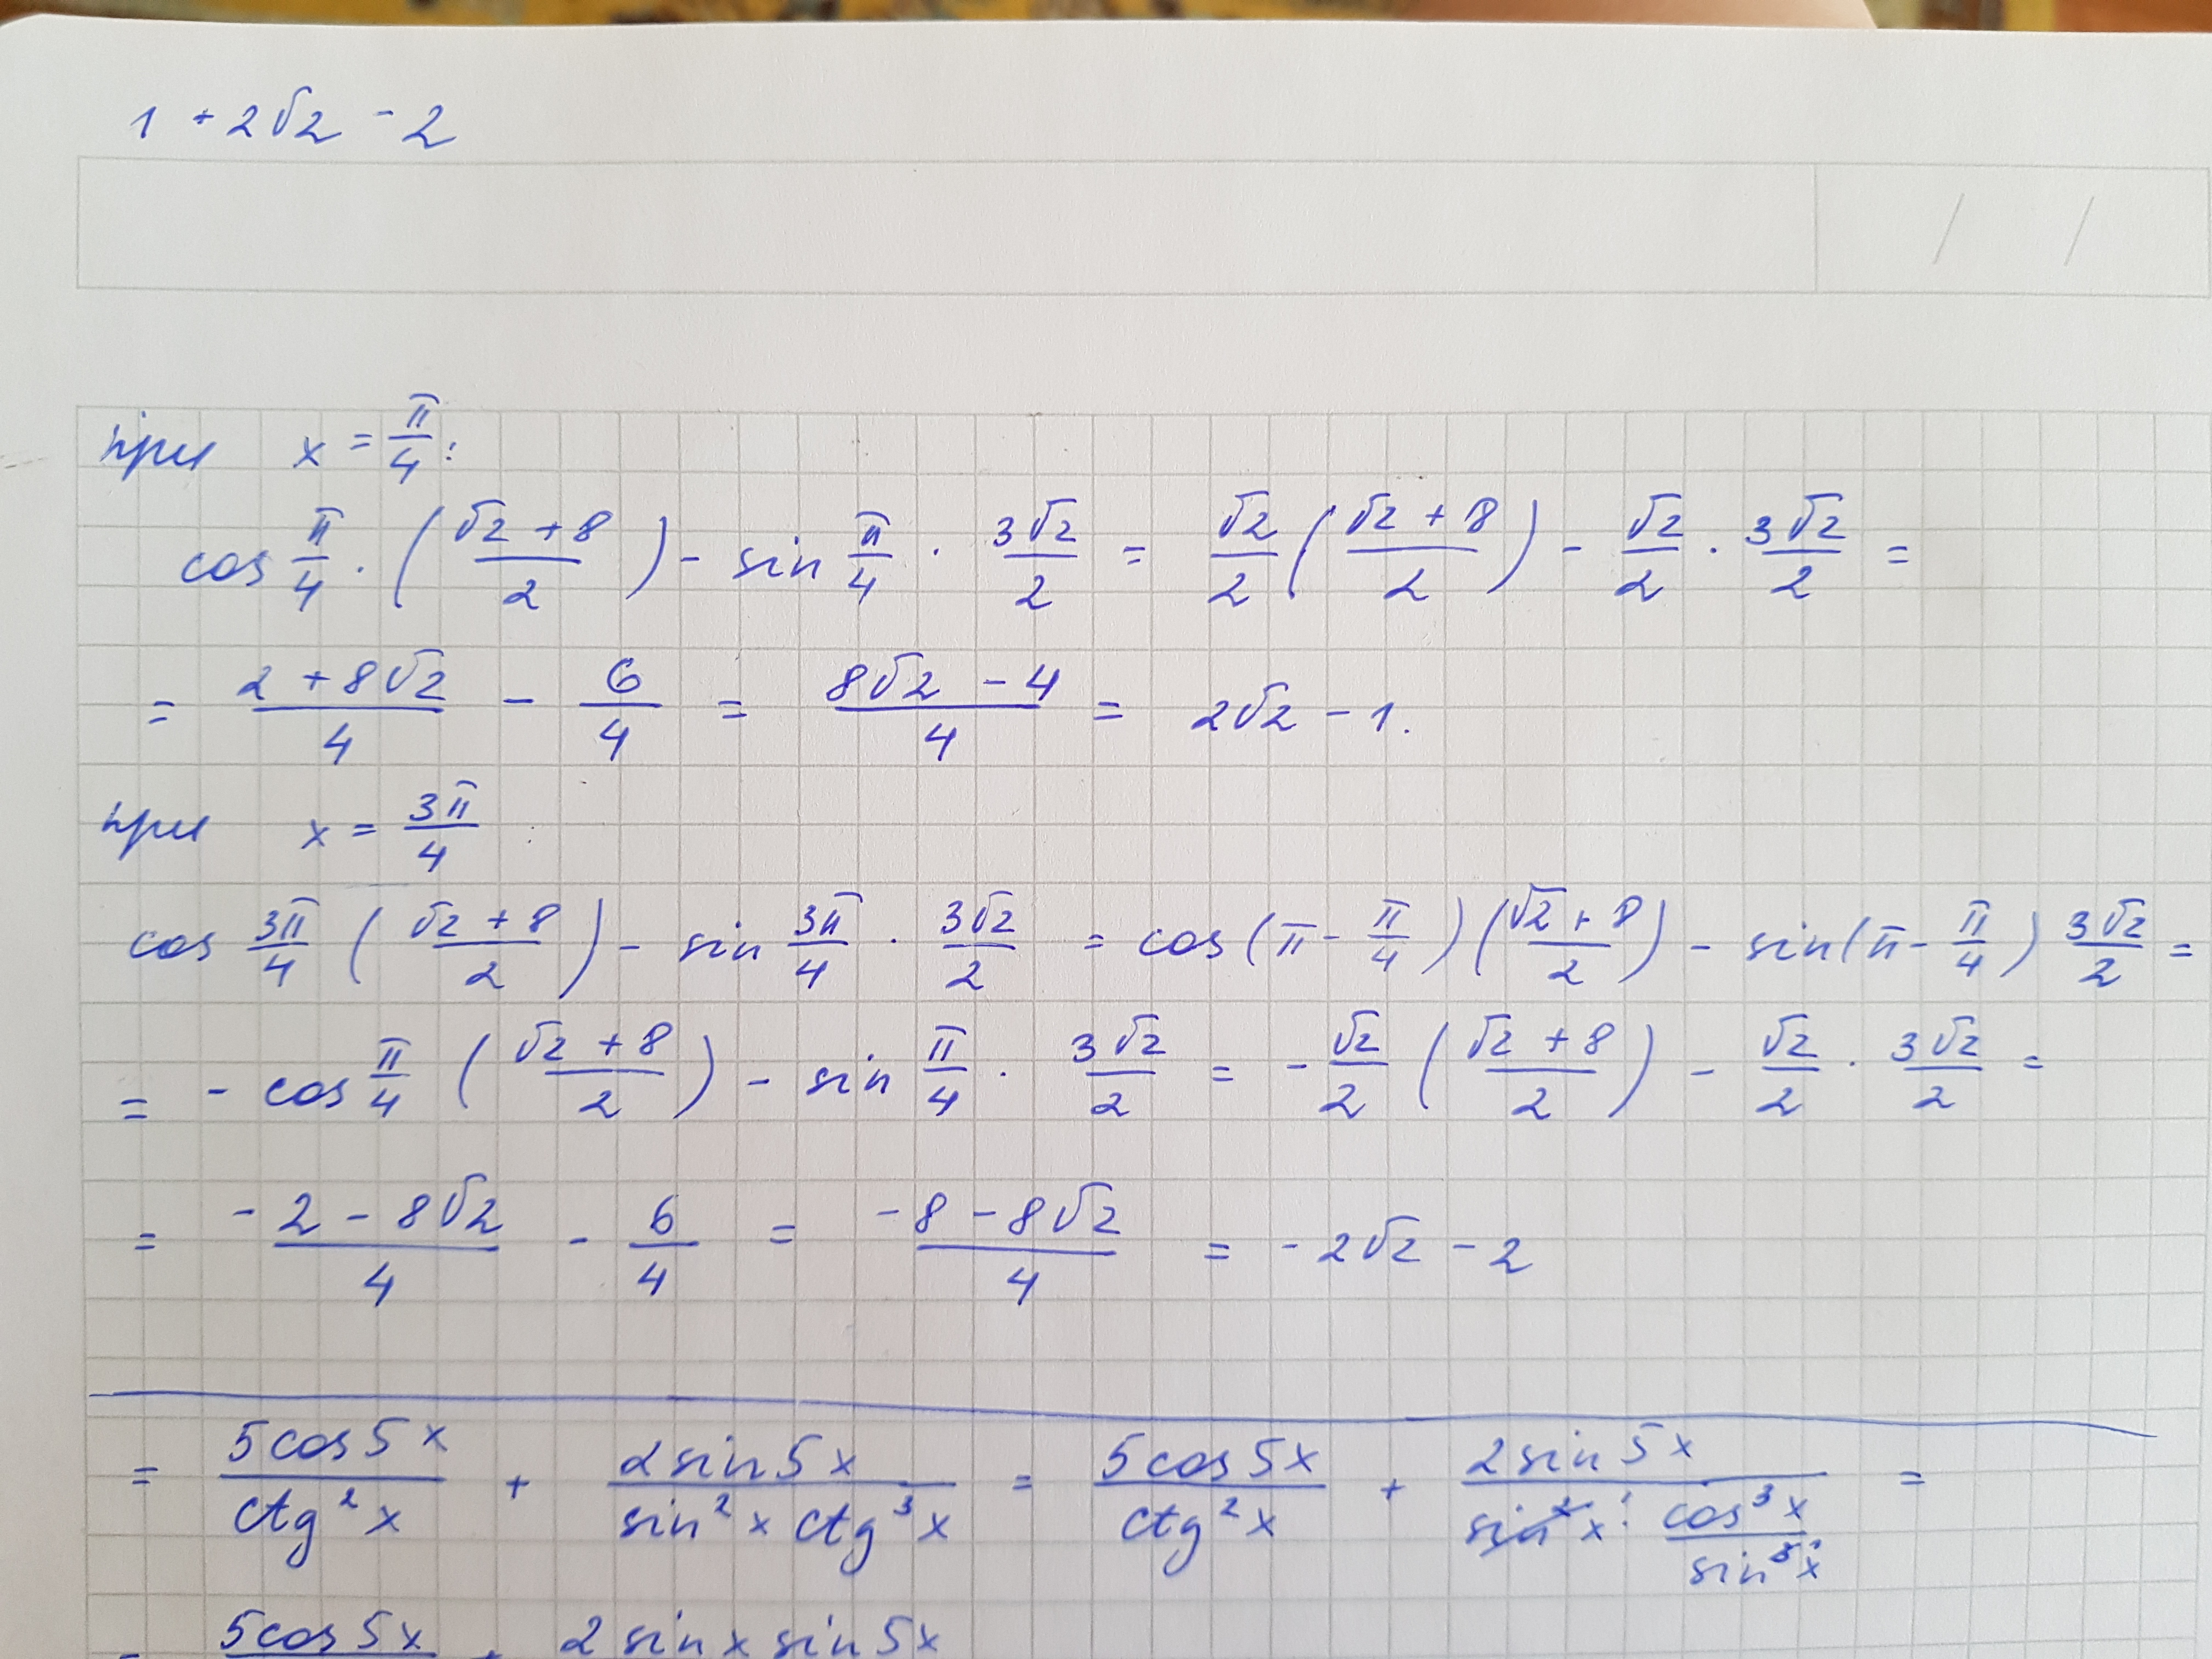 1 + 2√2 - 2
/ /
при x = π/4 :
cos π/4 · ((√2 + 8)/2) - sin π/4 · 3√2/2 = √2/2 ((√2 + 8)/2) - √2/2 · 3√2/2 =
= (2 + 8√2)/4 - 6/4 = (8√2 - 4)/4 = 2√2 - 1.
при x = 3π/4 :
cos 3π/4 ((√2 + 8)/2) - sin 3π/4 · 3√2/2 = cos(π - π/4) ((√2 + 8)/2) - sin(π - π/4) 3√2/2 =
= - cos π/4 ((√2 + 8)/2) - sin π/4 · 3√2/2 = - √2/2 ((√2 + 8)/2) - √2/2 · 3√2/2 =
= (-2 - 8√2)/4 - 6/4 = (-8 - 8√2)/4 = -2√2 - 2
= 5cos5x/ctg²x + 2sin5x/(sin²x ctg³x) = 5cos5x/ctg²x + 2sin5x/(sin²x · cos³x/sin³x) =
= 5cos5x + 2 sinx sin5x